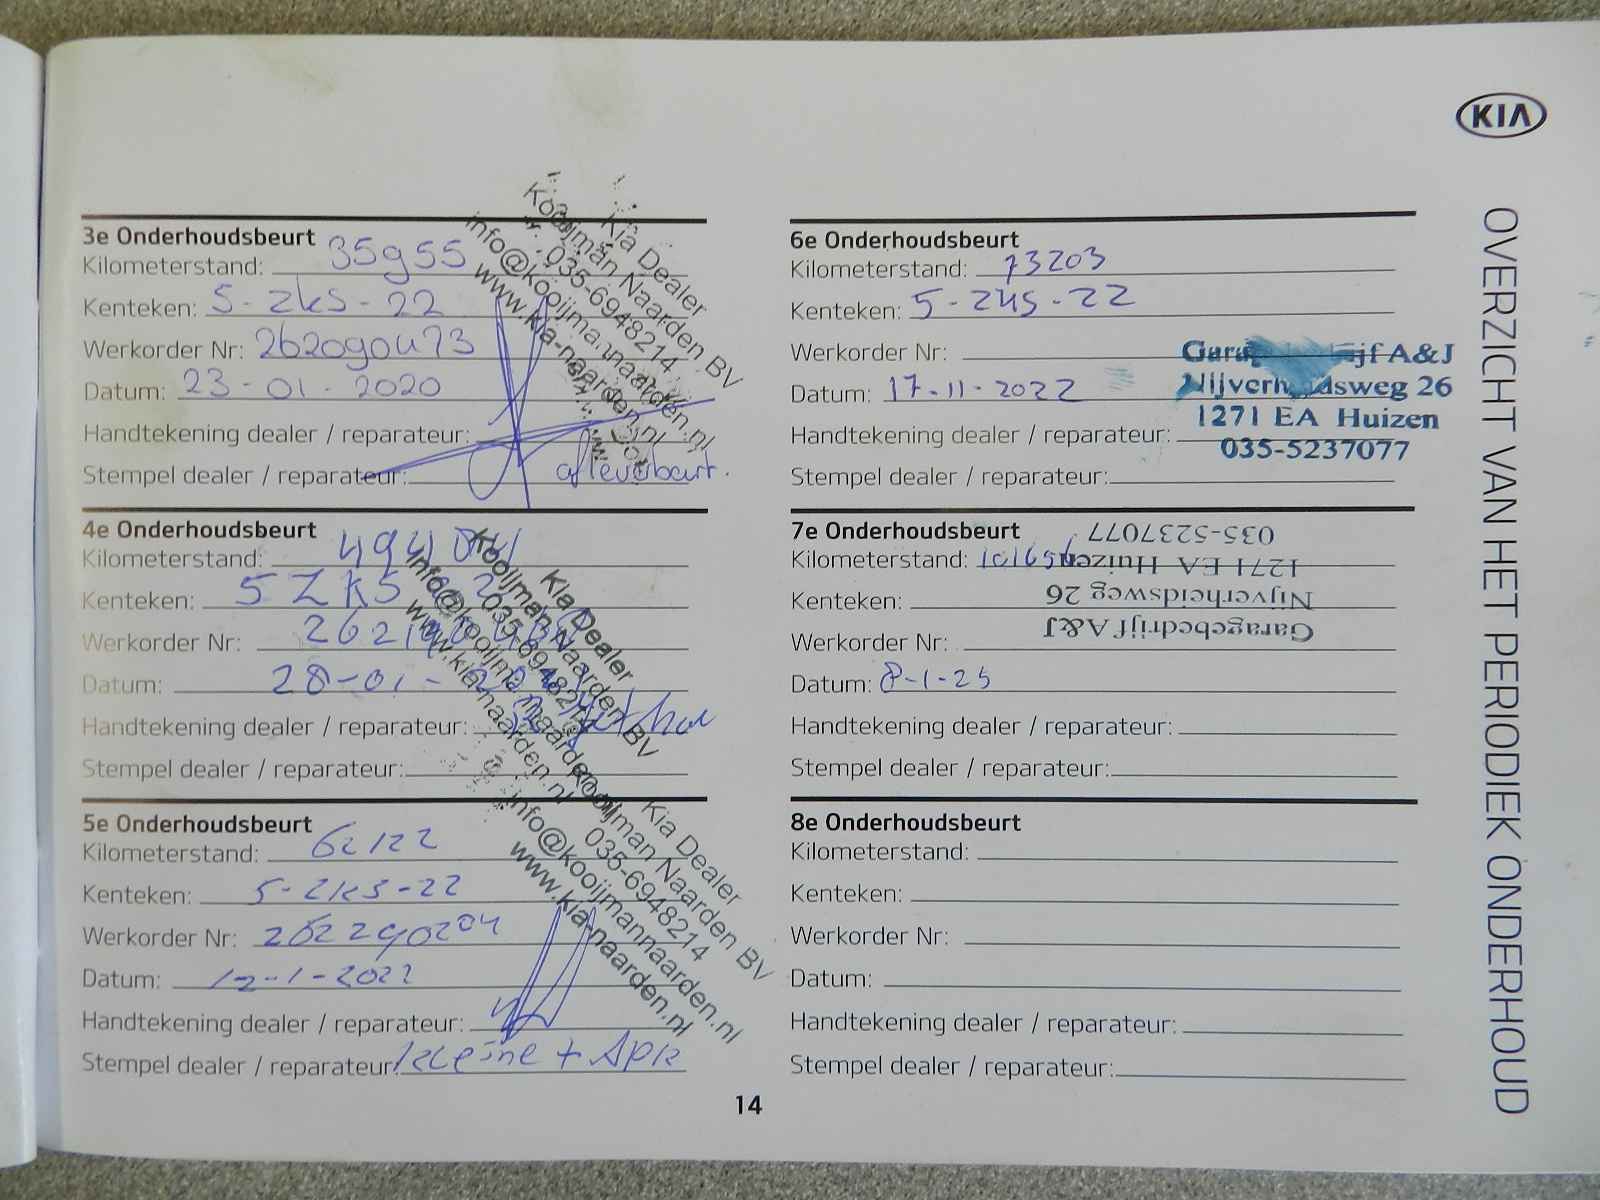 KIA
OVERZICHT VAN HET PERIODIEK ONDERHOUD
3e Onderhoudsbeurt
Kilometerstand: 35955
Kenteken: 5-ZKS-22
Werkorder Nr: 262090473
Datum: 23-01-2020
Handtekening dealer / reparateur:
Stempel dealer / reparateur: afleverbeurt.
Kia Dealer
Kooijman Naarden BV
035-6948214
info@kooijmannaarden.nl
www.kia-naarden.nl
4e Onderhoudsbeurt
Kilometerstand:
Kenteken: 5 ZKS
Werkorder Nr:
Datum: 28-01-
Handtekening dealer / reparateur:
Stempel dealer / reparateur:
Kia Dealer
Kooijman Naarden BV
035-6948214
info@kooijmannaarden.nl
www.kia-naarden.nl
5e Onderhoudsbeurt
Kilometerstand: 62122
Kenteken: 5-ZKS-22
Werkorder Nr: 262290204
Datum: 12-1-2022
Handtekening dealer / reparateur:
Stempel dealer / reparateur: kleine + APK
Kia Dealer
Kooijman Naarden BV
035-6948214
info@kooijmannaarden.nl
www.kia-naarden.nl
6e Onderhoudsbeurt
Kilometerstand: 73203
Kenteken: 5-ZKS-22
Werkorder Nr:
Datum: 17-11-2022
Handtekening dealer / reparateur:
Stempel dealer / reparateur:
Garagebedrijf A&J
Nijverheidsweg 26
1271 EA Huizen
035-5237077
7e Onderhoudsbeurt
Kilometerstand:
Kenteken:
Werkorder Nr:
Datum: 8-1-25
Handtekening dealer / reparateur:
Stempel dealer / reparateur:
Garagebedrijf A&J
Nijverheidsweg 26
1271 EA Huizen
035-5237077
8e Onderhoudsbeurt
Kilometerstand:
Kenteken:
Werkorder Nr:
Datum:
Handtekening dealer / reparateur:
Stempel dealer / reparateur:
14